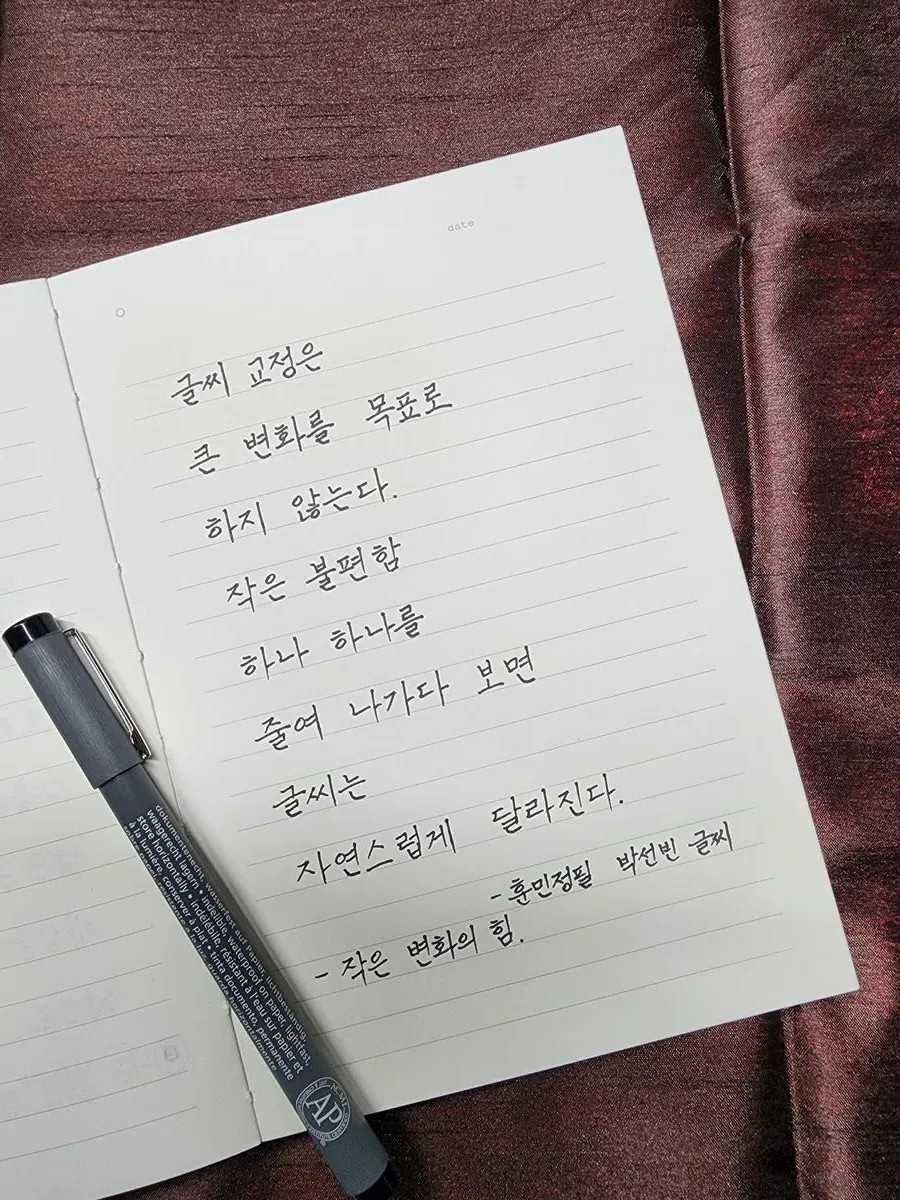 date
글씨 교정은
큰 변화를 목표로
하지 않는다.
작은 불편함
하나 하나를
줄여 나가다 보면
글씨는
자연스럽게 달라진다.
- 훈민정필 박선빈 글씨
- 작은 변화의 힘.
dokumentenecht, wasserfest auf Papier, lichtbeständig,
waagerecht lagern • indelible, waterproof on paper, lightfast,
store horizontally • indélébile, résistant à l'eau sur papier et
à la lumière, conserver à plat • tinta documental, permanente
AP